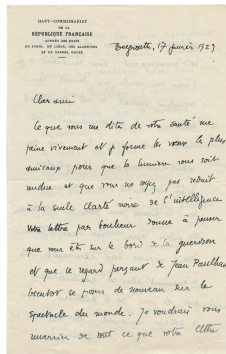 HAUT-COMMISSARIAT
DE LA
RÉPUBLIQUE FRANÇAISE
AUPRÈS DES ÉTATS
DE SYRIE, DU LIBAN, DES ALAOUITES
ET DU DJEBEL DRUZE
Beyrouth, 17 janvier 1929
Cher ami
Ce que vous me dites de votre santé me
peine vivement et je forme les vœux les plus
amicaux pour que la lumière vous soit
rendue et que vous ne soyez pas réduit
à la seule clarté noire de l'intelligence
Votre lettre par bonheur donne à penser
que vous êtes sur le bord de la guérison
et que le regard perçant de Jean Paulhan
bientôt se posera de nouveau sur le
spectacle du monde. Je voudrais vous
remercier de tout ce que votre lettre